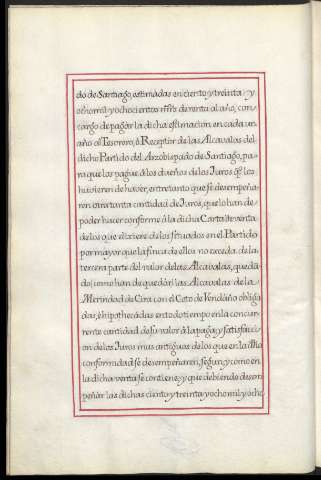 do de Santiago, estimadas en ciento y treinta y
ocho mil y ochocientos mrs de renta al año, con
cargo de pagar la dicha estimacion en cada un
año al Tesorero, ò Receptor de las Alcavalas del
dicho Partido del Arzobispado de Santiago, pa-
ra que los pague à los dueños de los Juros q̃ los
huvieren de haver, entretanto que se desempeña-
ren otra tanta cantidad de Juros, que lo han de
poder hacer conforme à la dicha Carta de venta
de los que eligiere de los situados en el Partido
por mayor que la finca de ellos no exceda de la
tercera parte del valor de las Alcavalas, queda-
do, como han de quedar las Alcavalas de la
Merindad de Cira con el Coto de Vendaño obliga-
das, è hipothecadas en todo tiempo en la concur-
rente cantidad de su valor à la paga, y satisfac-
ion de los Juros mas antiguos de los que en la dha
conformidad se desempeñaren, segun, y como en
la dicha venta se contiene; y que debiendo desem-
peñar las dichas ciento y treinta y ocho mil y ocho